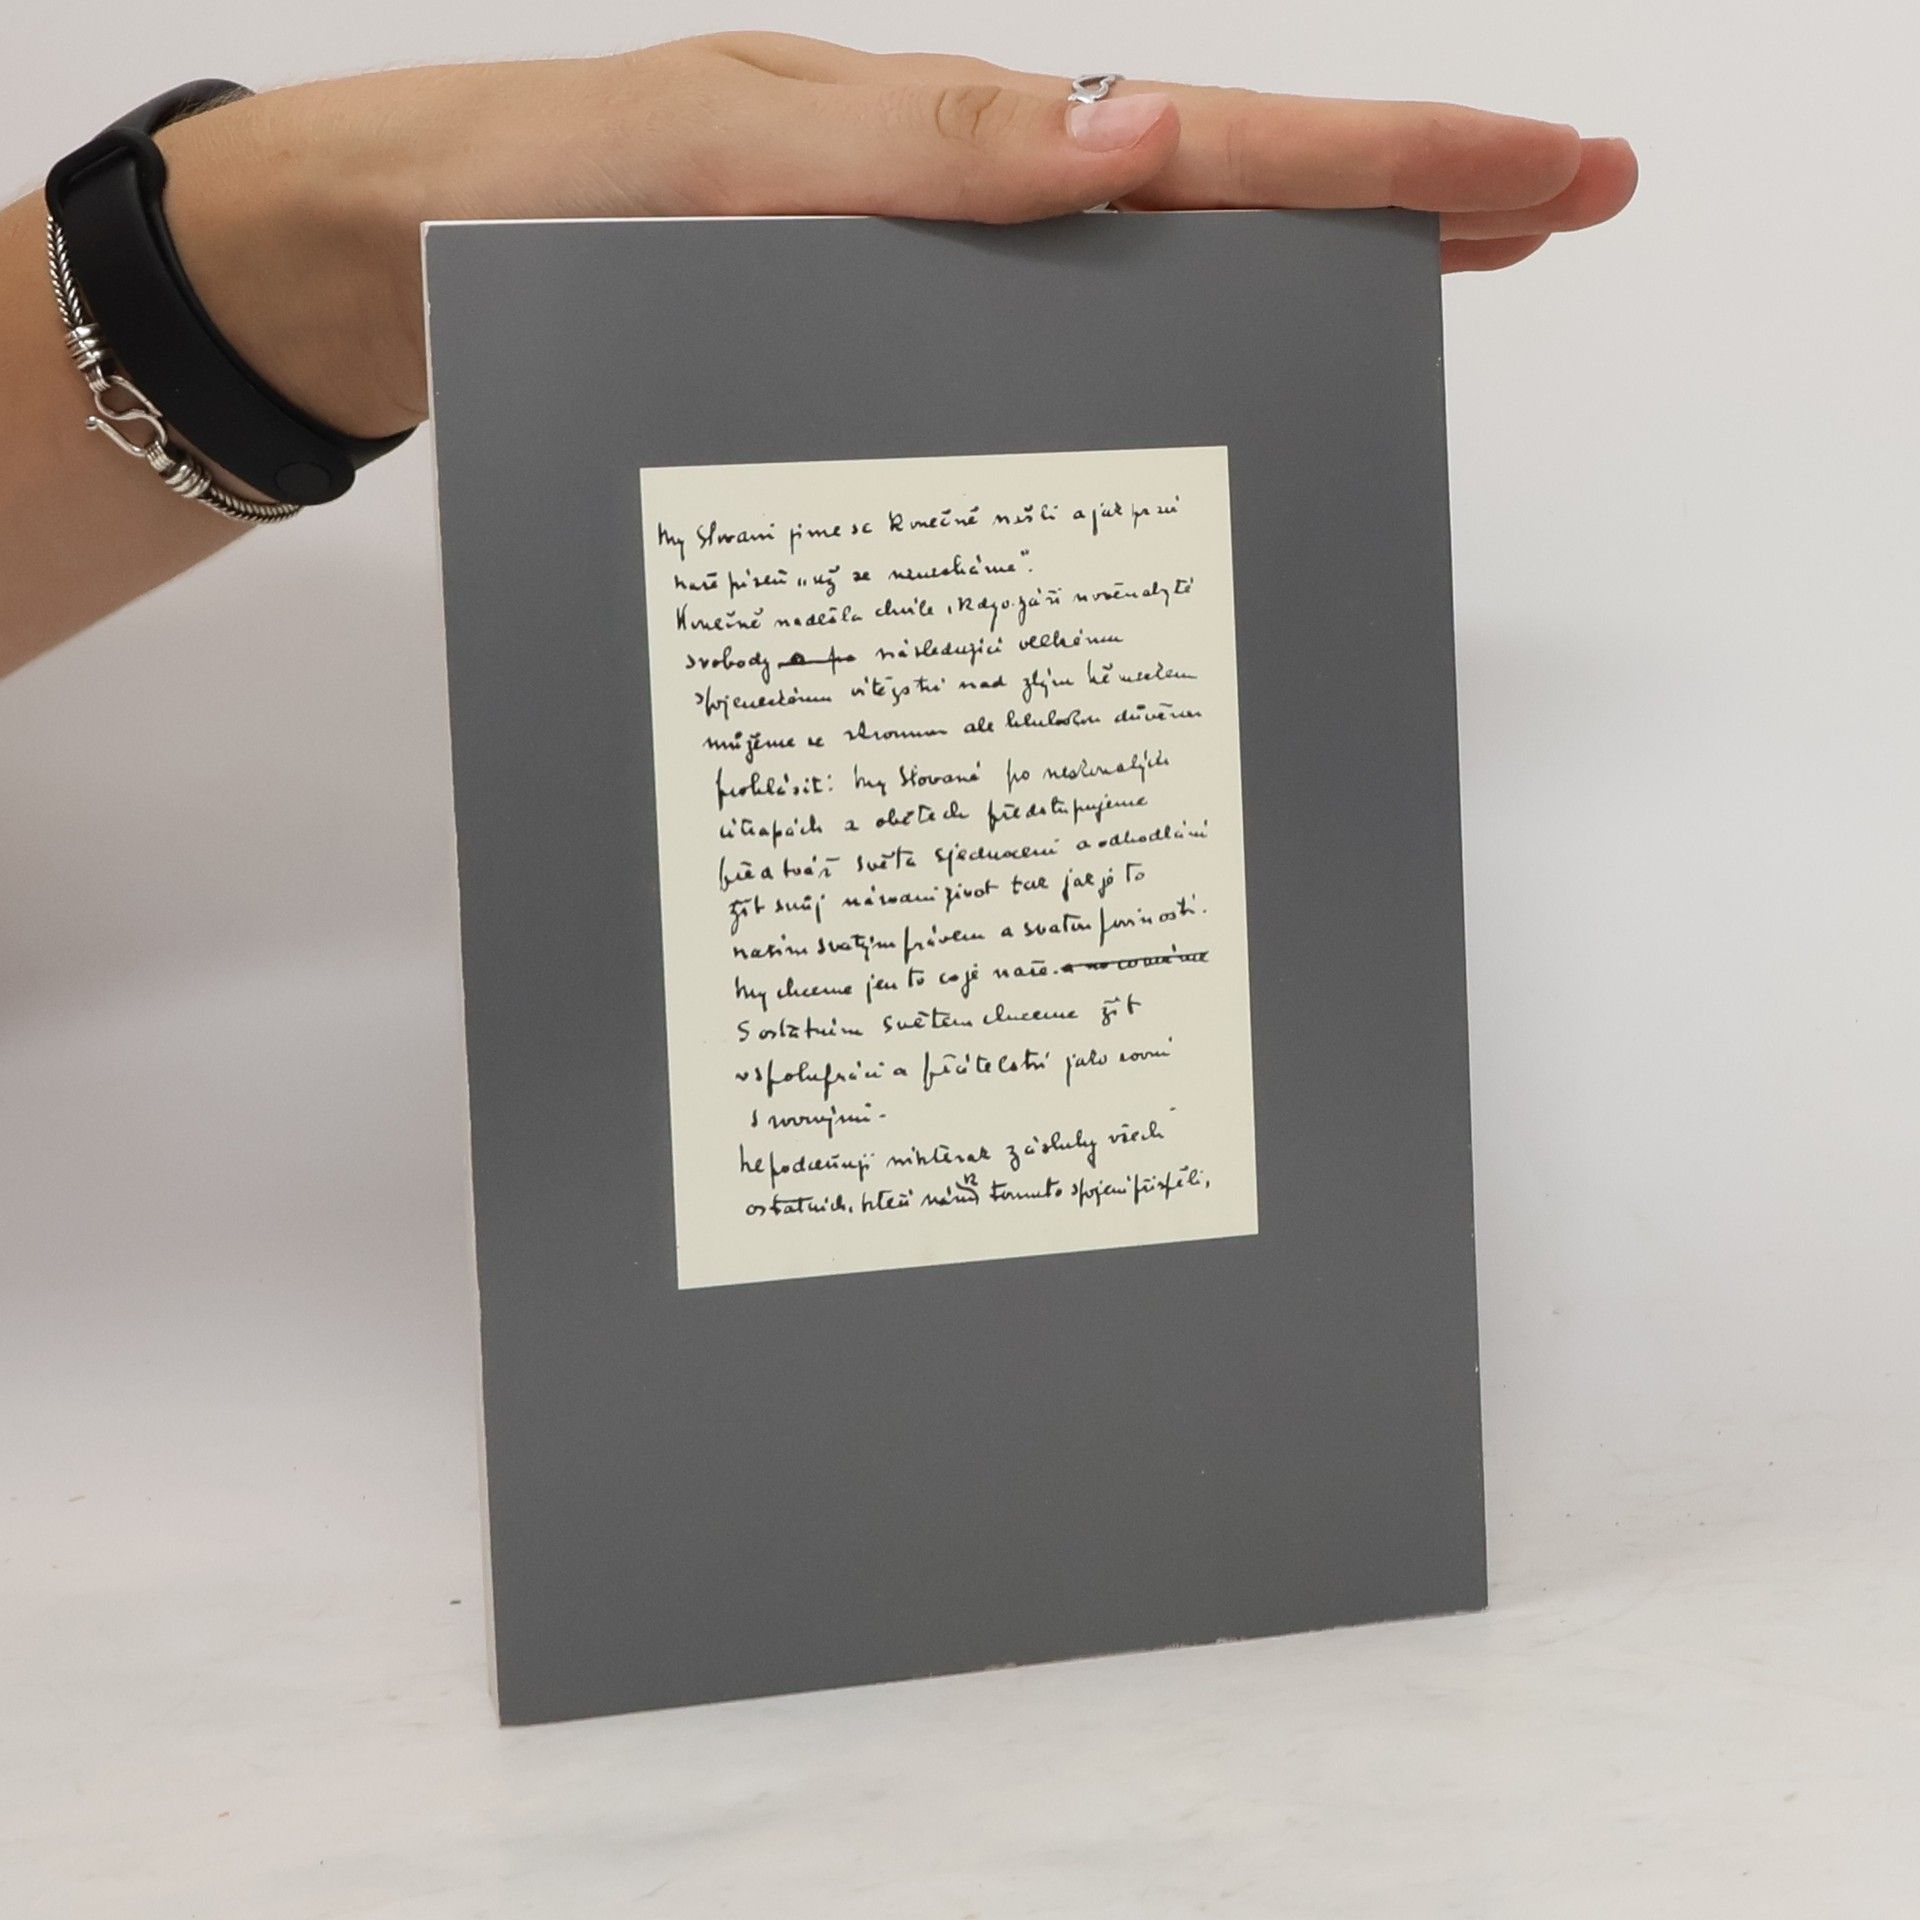 My Slované jsme se konečně našli a jak praví
naše píseň „už se nenecháme“.
Konečně nadešla chvíle, kdy v září nověnabyté
svobody následující velkému
spojeneckému vítězství nad zlým Německem
můžeme se skromnou ale hlubokou důvěrou
prohlásit: My Slované po neskonalých
útrapách a obětech předstupujeme
před tvář světa sjednoceni a odhodláni
žít svůj národní život tak jak je to
naším svatým právem a svatou povinností.
My chceme jen to co je naše.
S ostatním světem chceme žít
v spolupráci a přátelství jako rovní
s rovnými.
Nepodceňuji nikterak zásluhy všech
ostatních, kteří nám k tomuto spojení přispěli,